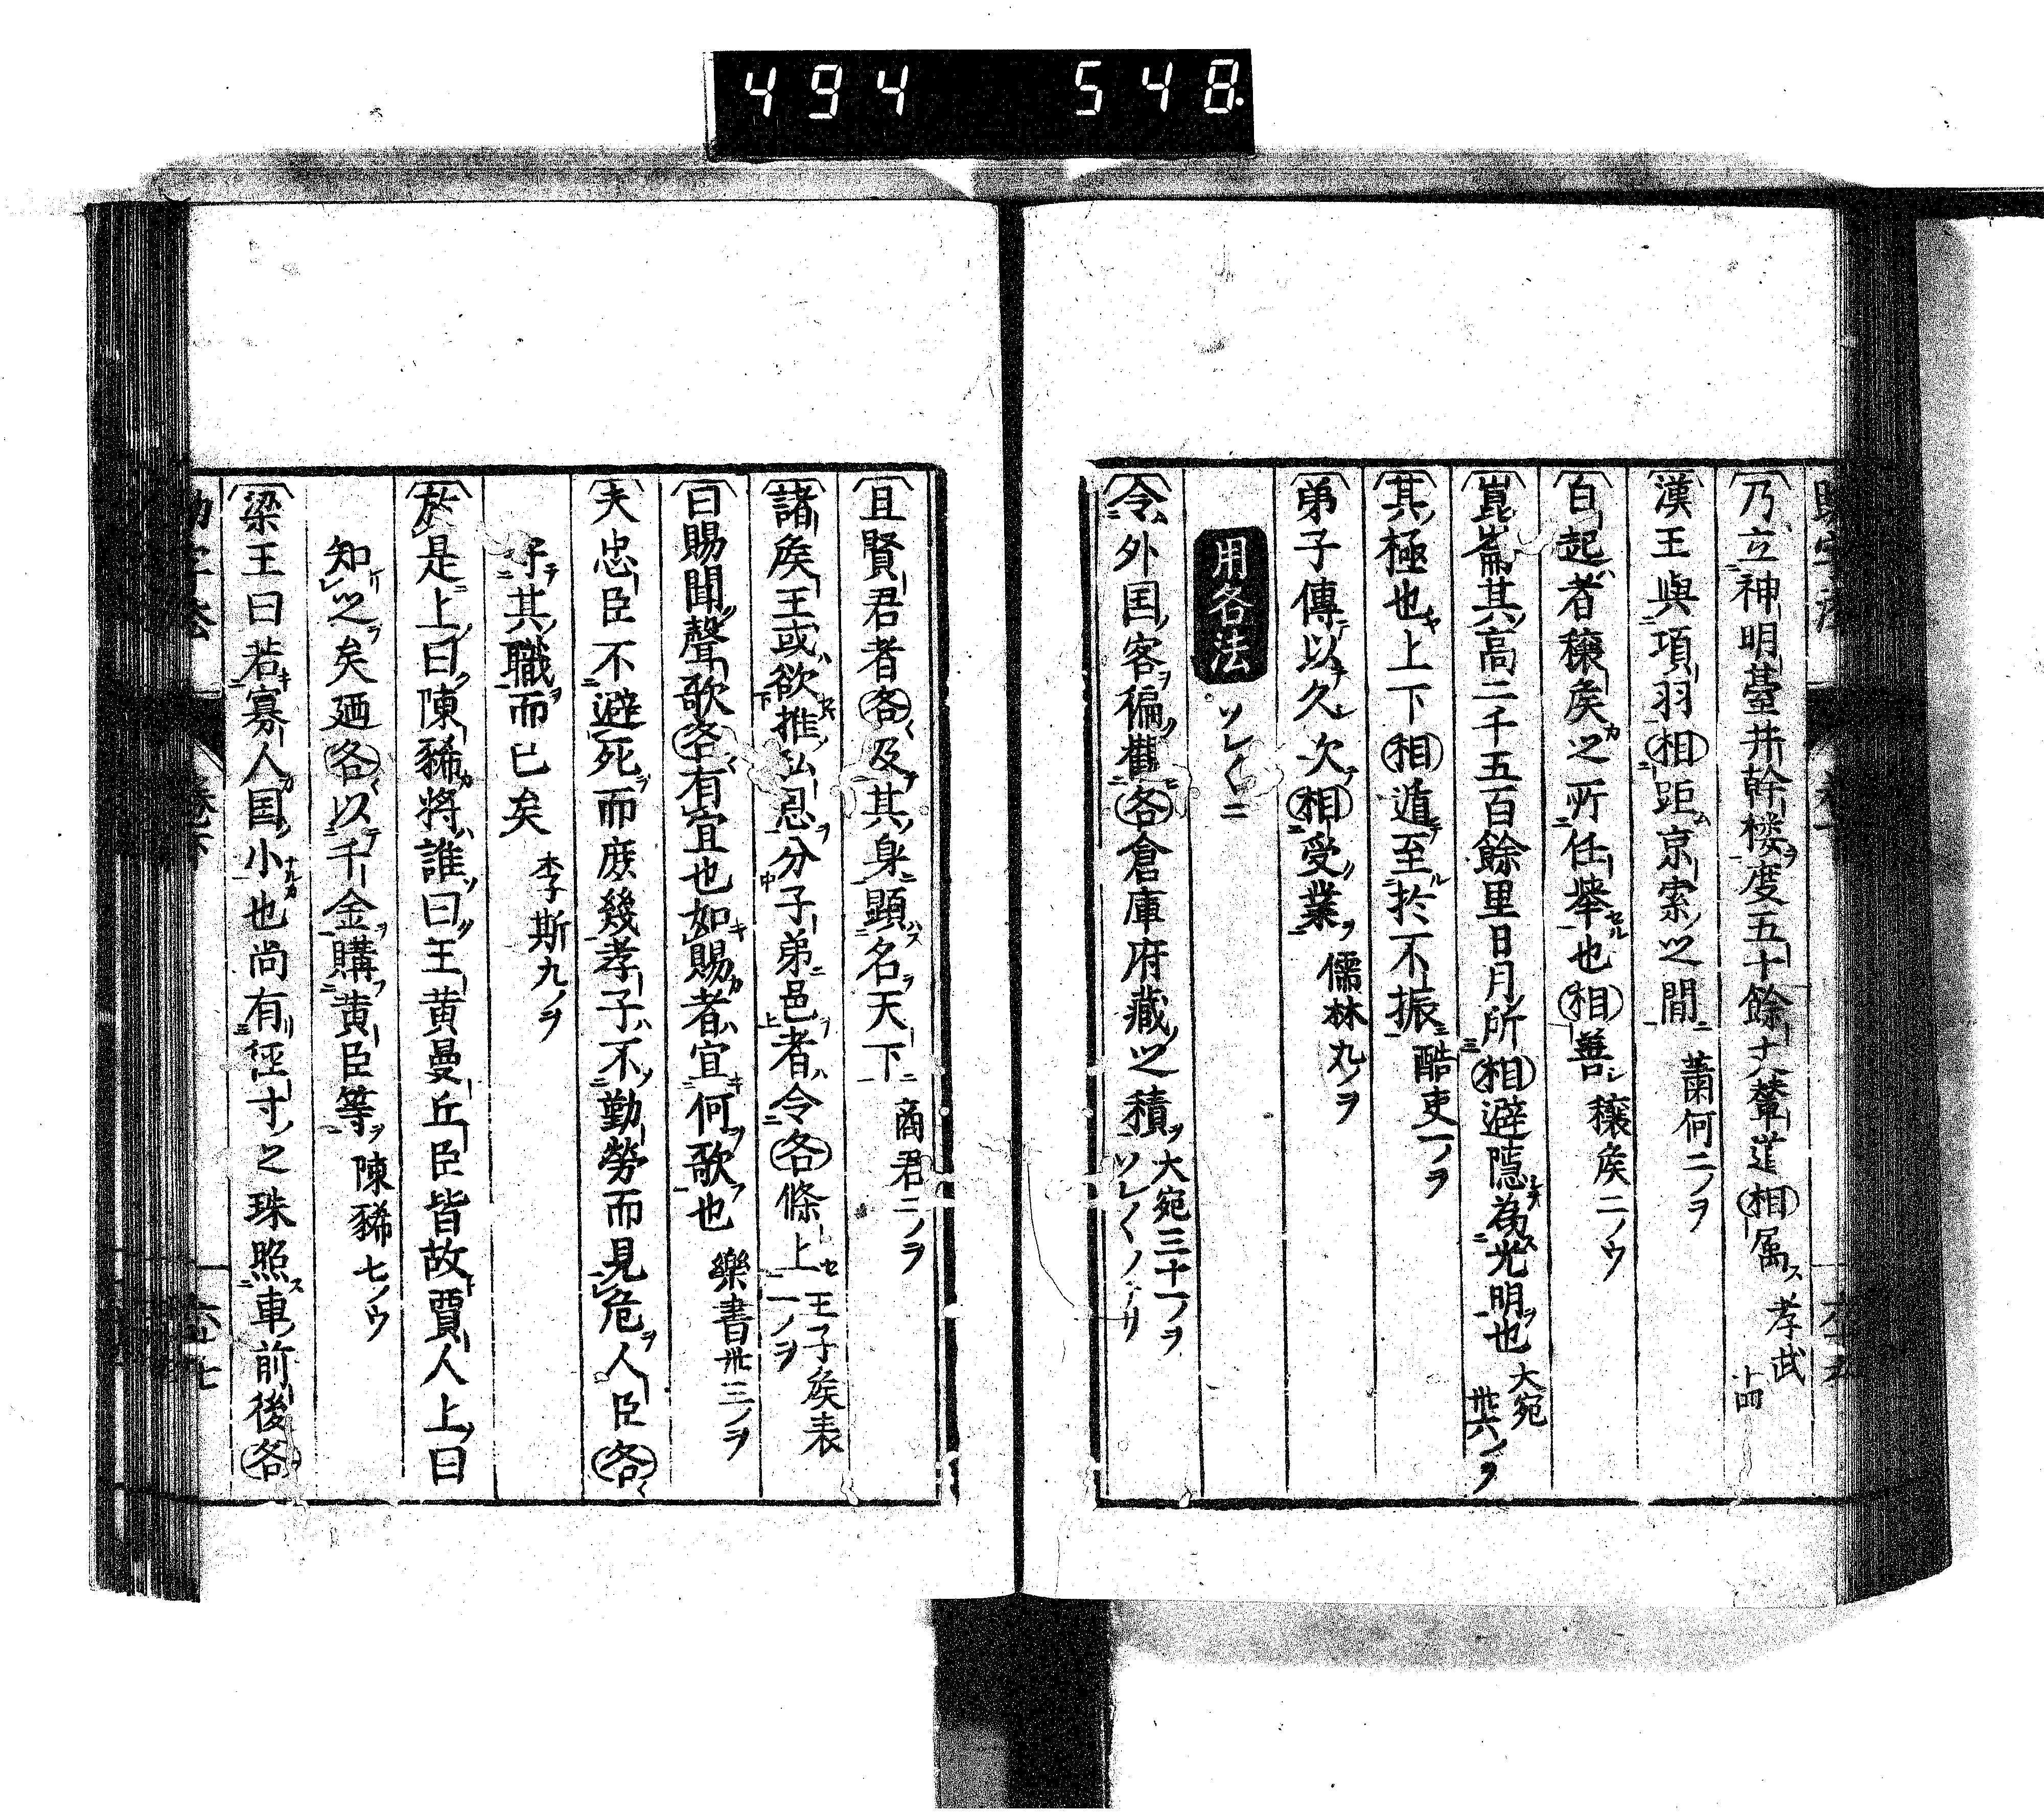 494 548
乃立神明䑓井幹楼度五十餘丈輦道相属ス 孝武十四
漢王與項羽相距京索之間 蕭何二ノヲ
白起者穰矦之所任舉也相善 穰矦二ノウ
崑崙其高二千五百餘里日月所相避隠為光明也 大宛卅六ノヲ
其極也上下相遁至於不振 酷吏一ノヲ
弟子傳以久次相受業 儒林九ノヲ
用各法 ソレ〱ニ
令外国客徧觀各倉庫府藏之積 大宛三十一ノヲ
且賢君者各及其身顕名天下 商君二ノヲ
諸矦王或欲推私恩分子弟邑者令各條上 王子矦表一ノヲ
曰賜聞聲歌各有宜也如賜者宜何歌也 樂書卅三ノヲ
夫忠臣不避死而庶幾孝子不勤勞而見危人臣各
守其職而已矣 李斯九ノヲ
於是上曰陳豨将誰曰王黄曼丘臣皆故賈人上曰
知之矣廼各以千金購黄臣等 陳豨七ノウ
梁王曰若寡人国小也尚有径寸之珠照車前後各